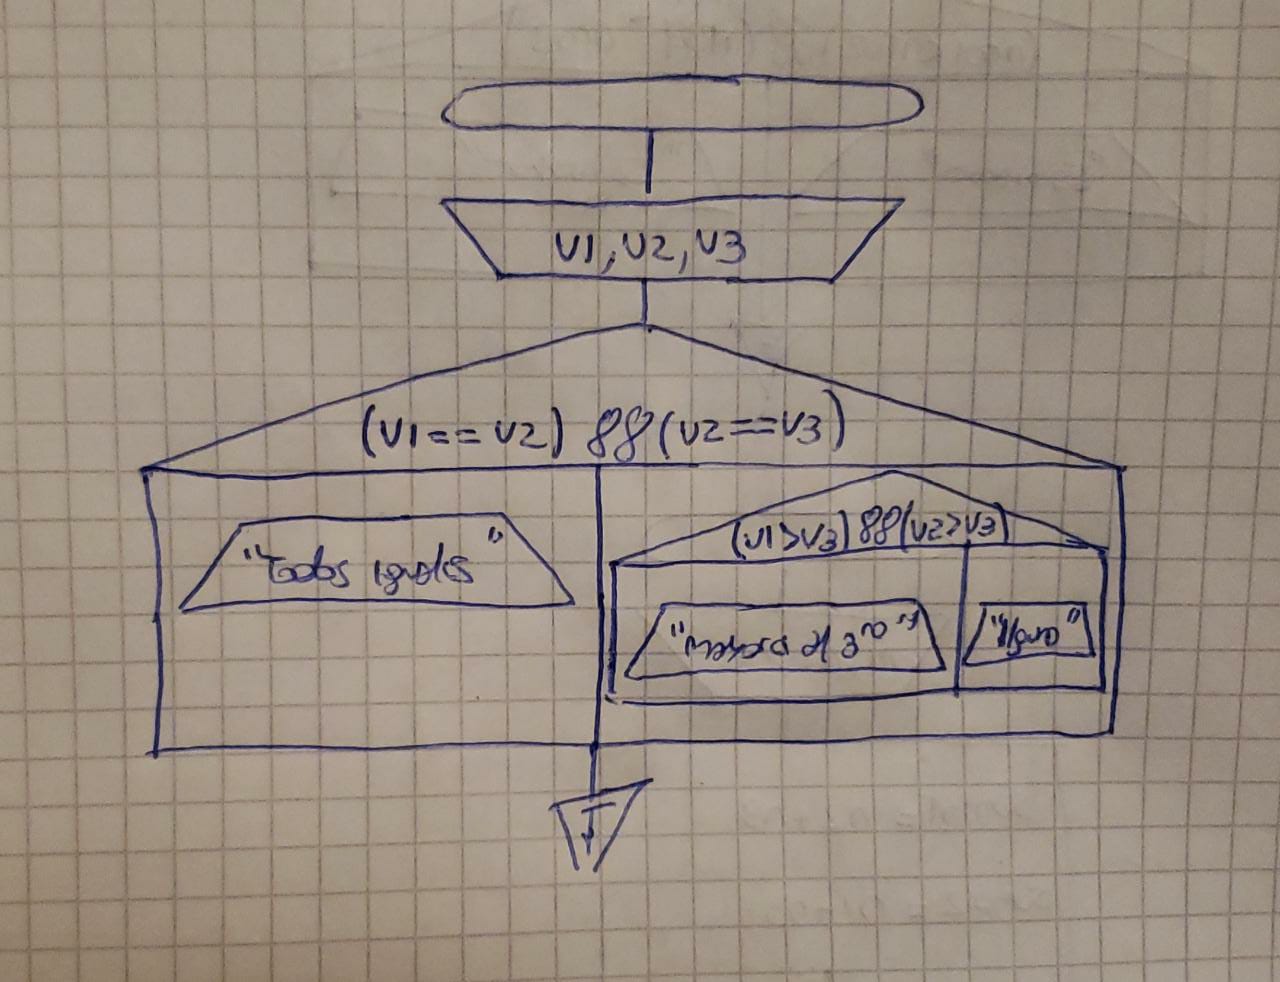 V1, V2, V3
(V1 == V2) && (V2 == V3)
"Todos iguales"
(V1 > V3) && (V2 > V3)
"Mayora al 3ro"